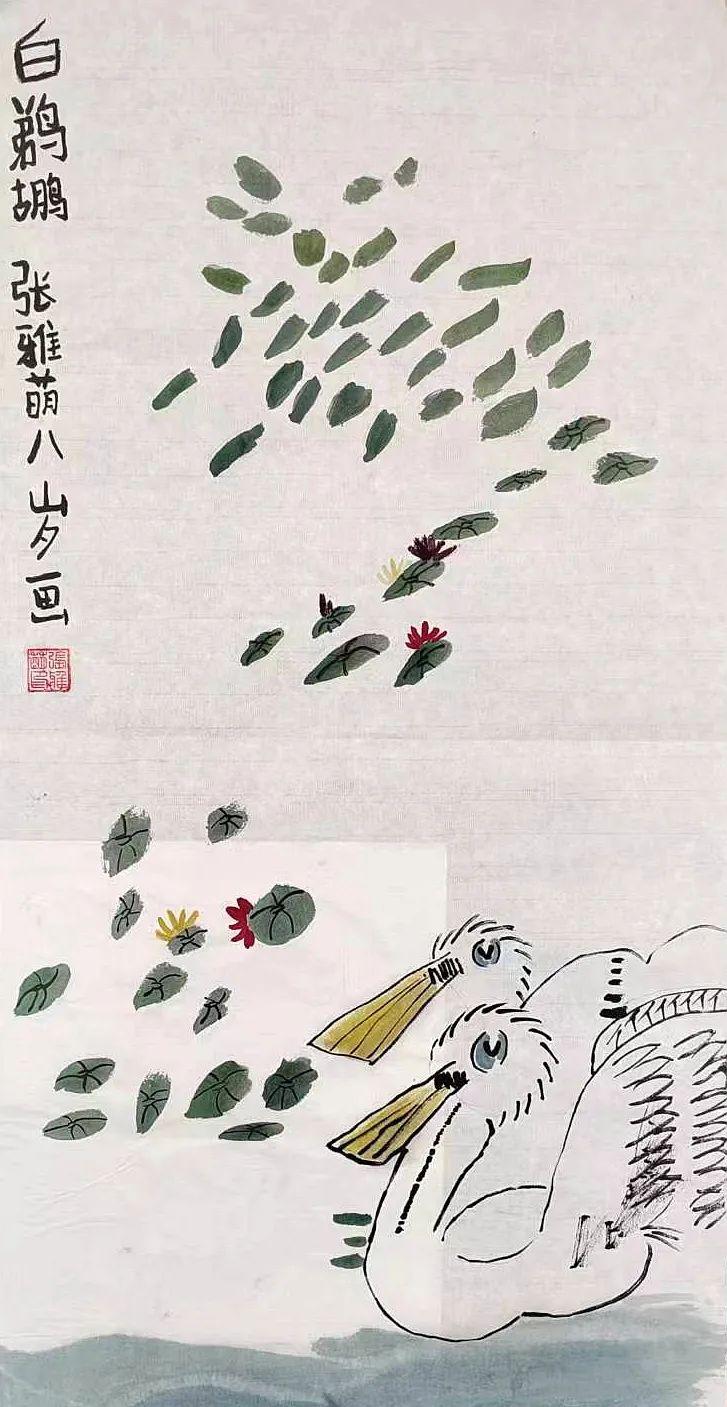 白鹈鹕 张雅萌八岁画